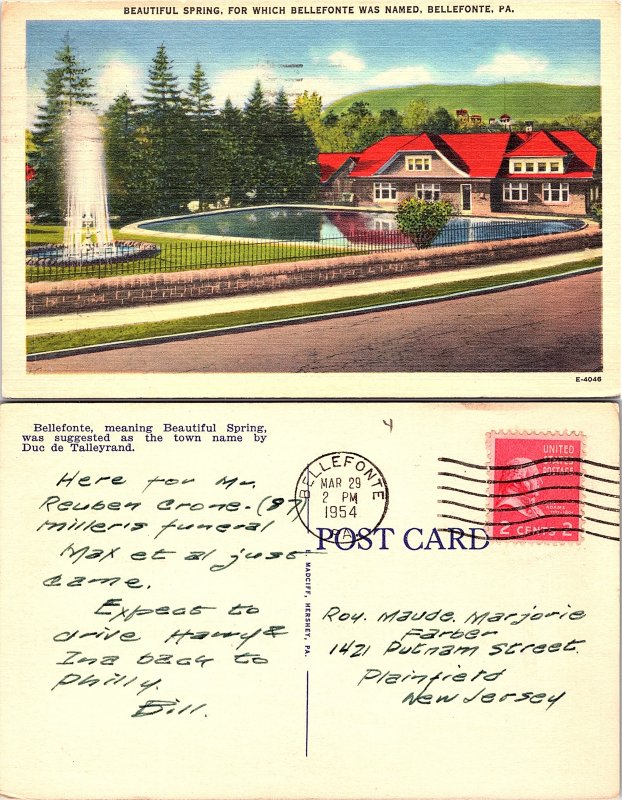 BEAUTIFUL SPRING, FOR WHICH BELLEFONTE WAS NAMED, BELLEFONTE, PA.
E-4046
Bellefonte, meaning Beautiful Spring,
was suggested as the town name by
Duc de Talleyrand.
Here for Mr.
Reuben Crone-(87)
Miller's funeral
Max et al just
came.
Expect to
drive Harry &
Ina back to
Philly.
Bill.
BELLEFONTE
MAR 29
2 PM
1954
PA.
UNITED
STATES
POSTAGE
2 CENTS 2
POST CARD
HERSHEY, PA.
Roy. Maude. Marjorie
Farber
1421 Putnam Street.
Plainfield
New Jersey